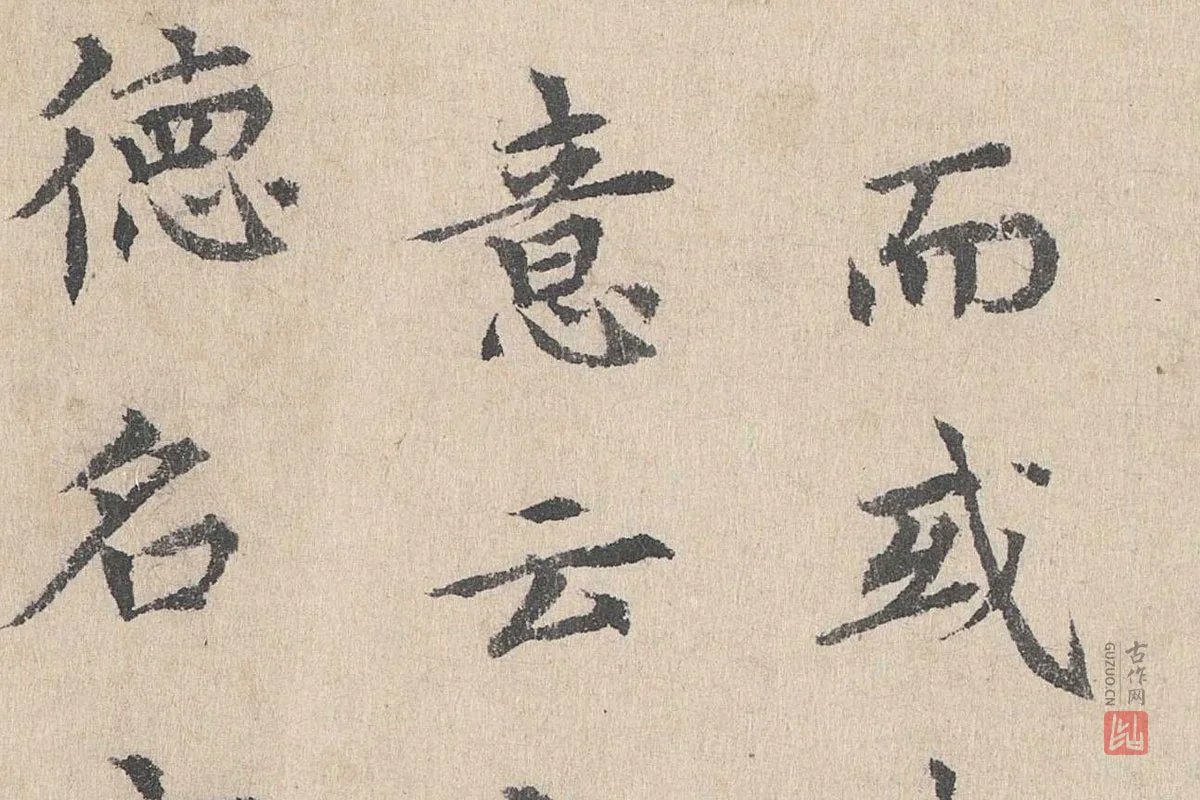 而或
意云
德名
古作网
GUZUO.CN